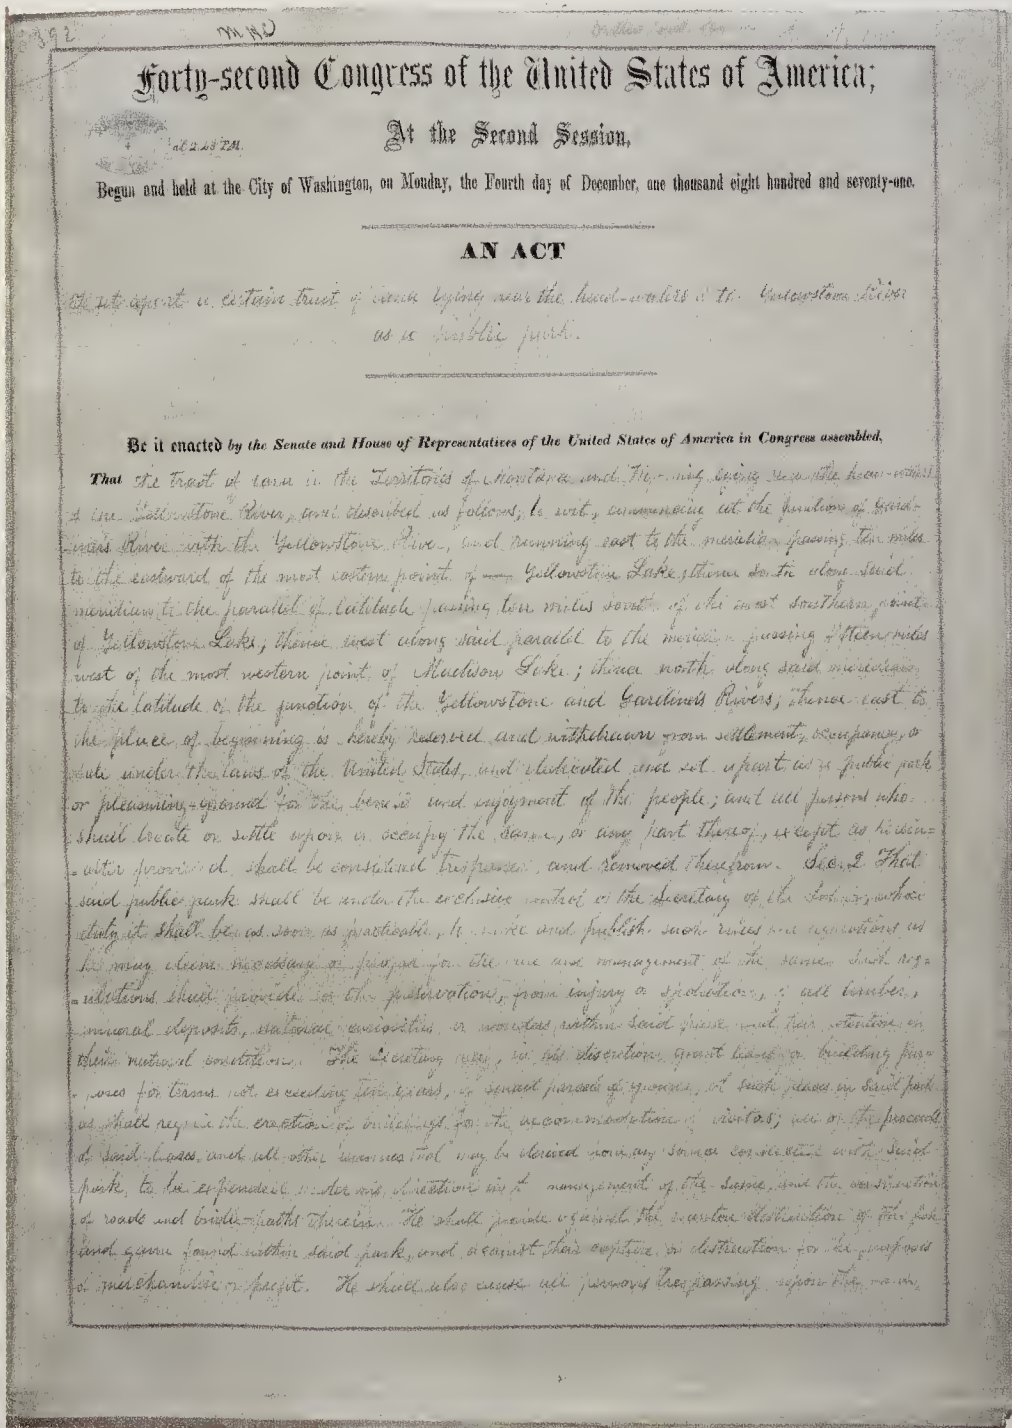 392
Forty-second Congress of the United States of America;
At the Second Session,
at 2.25 P.M.
Begun and held at the City of Washington, on Monday, the Fourth day of December, one thousand eight hundred and seventy-one.
AN ACT
set apart a certain tract of land lying near the head-waters of the Yellowstone River
as a public park.
Be it enacted by the Senate and House of Representatives of the United States of America in Congress assembled,
That the tract of land in the Territories of Montana and Wyoming lying near the head-waters
of the Yellowstone River, and described as follows, to wit, commencing at the junction of Gard-
iner's River with the Yellowstone River, and running east to the meridian passing ten miles
to the eastward of the most eastern point of Yellowstone Lake; thence south along said
meridian to the parallel of latitude passing ten miles south of the most southern point
of Yellowstone Lake; thence west along said parallel to the meridian passing fifteen miles
west of the most western point of Madison Lake; thence north along said meridian
to the latitude of the junction of the Yellowstone and Gardiner's Rivers; thence east to
the place of beginning is hereby reserved and withdrawn from settlement, occupancy, or
sale under the laws of the United States, and dedicated and set apart as a public park
or pleasuring-ground for the benefit and enjoyment of the people; and all persons who
shall locate or settle upon or occupy the same, or any part thereof, except as herein-
after provided, shall be considered trespassers and removed therefrom. Sec. 2 That
said public park shall be under the exclusive control of the Secretary of the Interior, whose
duty it shall be, as soon as practicable, to make and publish such rules and regulations as
he may deem necessary or proper for the care and management of the same. Such reg-
ulations shall provide for the preservation, from injury or spoliation, of all timber,
mineral deposits, natural curiosities or wonders within said park and their retention in
their natural condition. The Secretary may, in his discretion, grant leases for building pur-
poses for terms not exceeding ten years, of small parcels of ground, at such places in said park
as shall require the erection of buildings for the accommodation of visitors; all of the proceeds
of said leases, and all other revenues that may be derived from any source connected with said
park, to be expended under his direction in the management of the same, and the construction
of roads and bridle-paths therein. He shall provide against the wanton destruction of the fish
and game found within said park, and against their capture or destruction for the purposes
of merchandise or profit. He shall also cause all persons trespassing upon the same